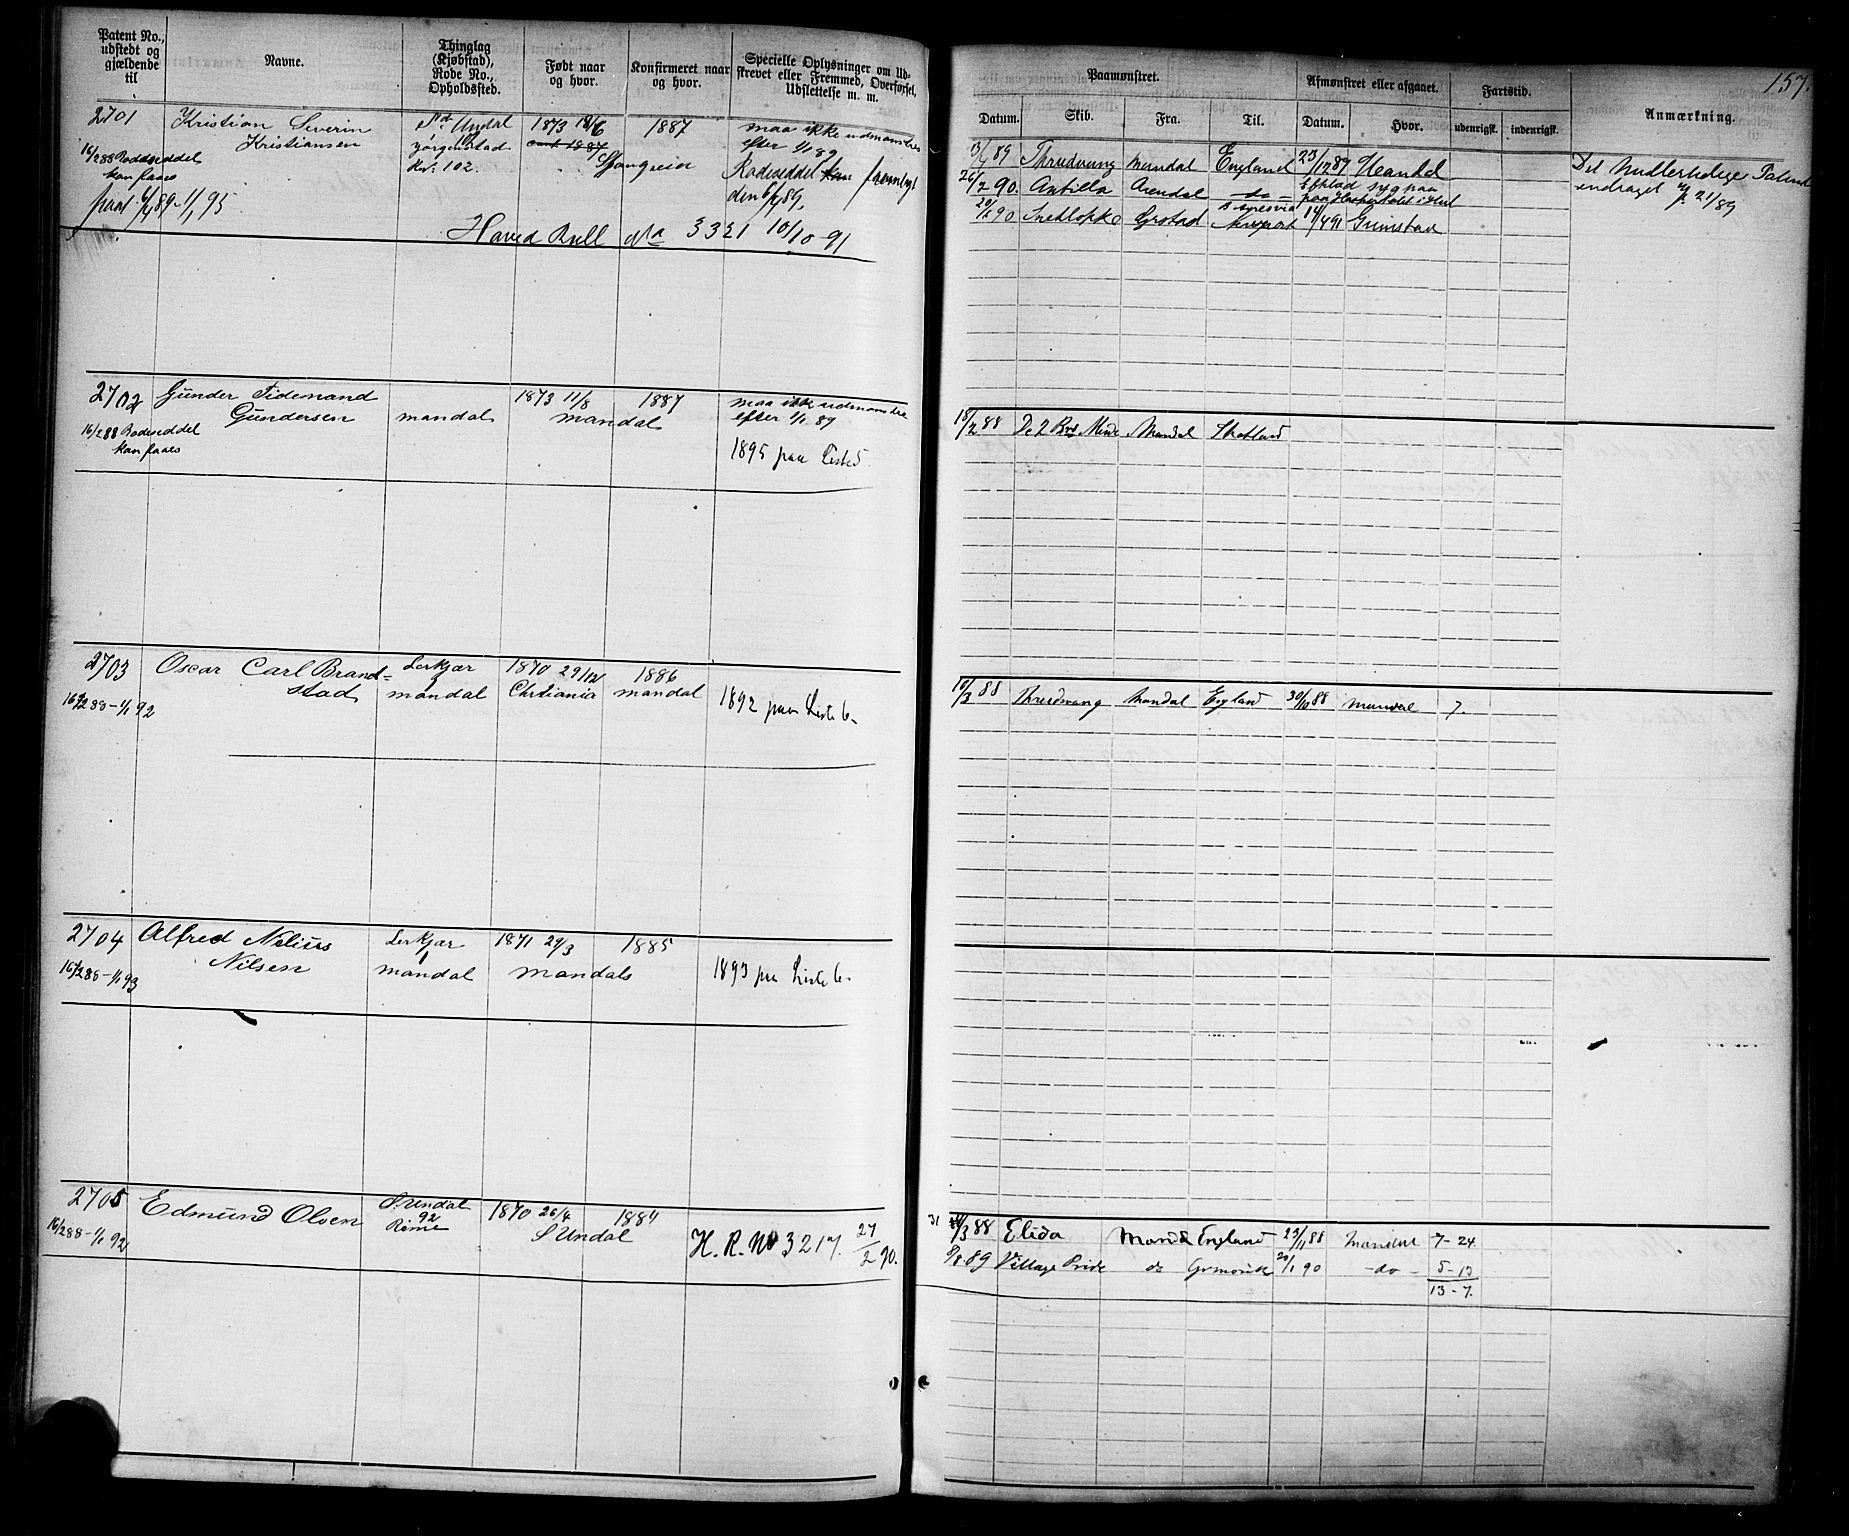 157.
Patent No., udstedt og gjældende til
Navne.
Thinglag (Kjøbstad), Rode No., Opholdssted.
Født naar og hvor.
Konfirmeret naar og hvor.
Specielle Oplysninger om Udskrevet eller Fremmed, Overførsel, Udslettelse m. m.
Paamønstret.
Afmønstret eller afgaaet.
Fartstid.
Anmærkning.
Datum.
Skib.
Fra.
Til.
Datum.
Hvor.
udenrigsk.
indenrigsk.
2701
Kristian Severin
Kristiansen
Undal
No. 102.
1873 18/6
1887
maa ikke udmønstres
efter 1/1 89
16/2 88 Rodeseddel
kan faaes
Spangreid
Rodeseddel
den 6/4 89.
1/1 95
Hoved Rull No 3321 10/10 91
89 Thrudvang Mandal England 23/12 89
26/2 90. Antilla Arendal do
90 Snelloppe Grstad Newport 14/4 91 Grimstad
Det Midlertidige Patent
inddraget
2702
Gunder Tidemand
Gundersen
Mandal
1873 11/8
Mandal
1887
maa ikke udmønstres
efter 1/1 89
16/2 88 Rodeseddel
kan faaes
1895 paa Listed
18/2 88 De 2 Minde Mandal Skotland
2703
Oscar Carl Brand=
stad
Lerkjær
Mandal
1870 29/12
Chrtiania
1886
Mandal
16/2 88 – 1/1 92
1892 paa Liste 6-
10/3 88 Thrudvang Mandal England 30/10 88 Mandal 7.
2704
Alfred Nelius
Nilsen
Lerkjær
1
Mandal
1871 29/3
Mandals
1885
16/2 88 – 1/1 93
1893 paa Liste 6-
2705
Edmund Olsen
S Undal
92
1870 26/4
S Undal
1884
16/2 88 – 1/1 92
H. R. No 3217. 27/2 90.
31/3 88 Elida Mandal England 23/11 88 Mandal 7 - 24
8/8 89 Village Pride do 20/1 90 - do - 5 - 13
13 - 7.